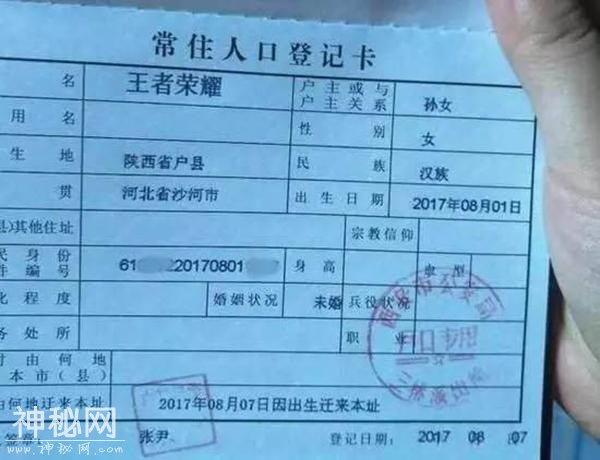 常住人口登记卡
名 王者荣耀 户主或与户主关系 孙女
用名 性别 女
生地 陕西省户县 民族 汉族
贯 河北省沙河市 出生日期 2017年08月01日
县)其他住址 宗教信仰
民身份件编号 61 20170801 身高 血型
化程度 婚姻状况 未婚 兵役状况
务处所 职业
时由何地
本市(县)
由何地迁来本址 2017年08月07日因出生迁来本址
签章: 张尹 登记日期: 2017 08 07
西安市公安局
户口专用
神秘网
www.神秘网.com